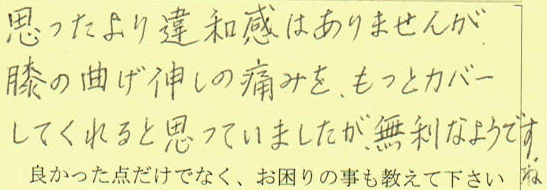 思ったより違和感はありませんが
膝の曲げ伸しの痛みを、もっとカバー
してくれると思っていましたが、無利なようですね
良かった点だけでなく、お困りの事も教えて下さい